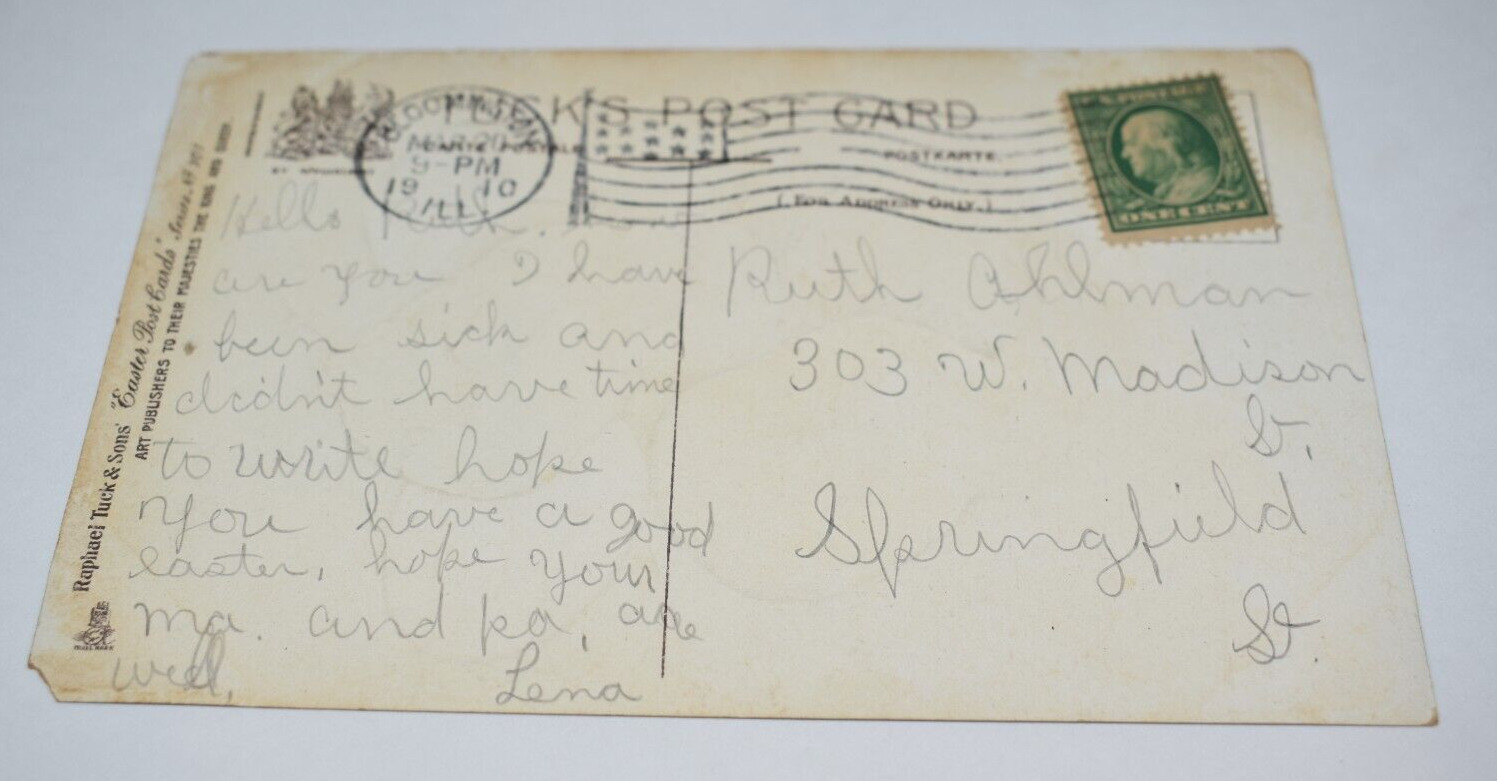 TUCK'S POST CARD
CARTE POSTALE
POSTKARTE
(FOR ADDRESS ONLY.)
BLOOMINGTON
MAR 20
9-PM
1910
ILL.
POSTAGE
ONE CENT
Raphael Tuck & Sons' "Easter Post Cards" Series, No
ART PUBLISHERS TO THEIR MAJESTIES THE KING AND QUEEN
TRADE MARK
Hello Ruth. How
are you I have
been sick and
didn't have time
to write hope
you have a good
easter, hope your
ma. and pa, are
well,
Lena
Ruth Ahlman
303 W. Madison
St,
Springfield
St.